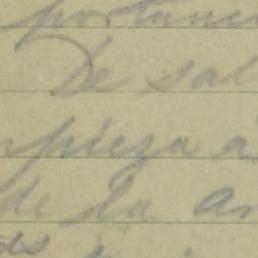 portanci
De sal
mpieza a
de la an
ds